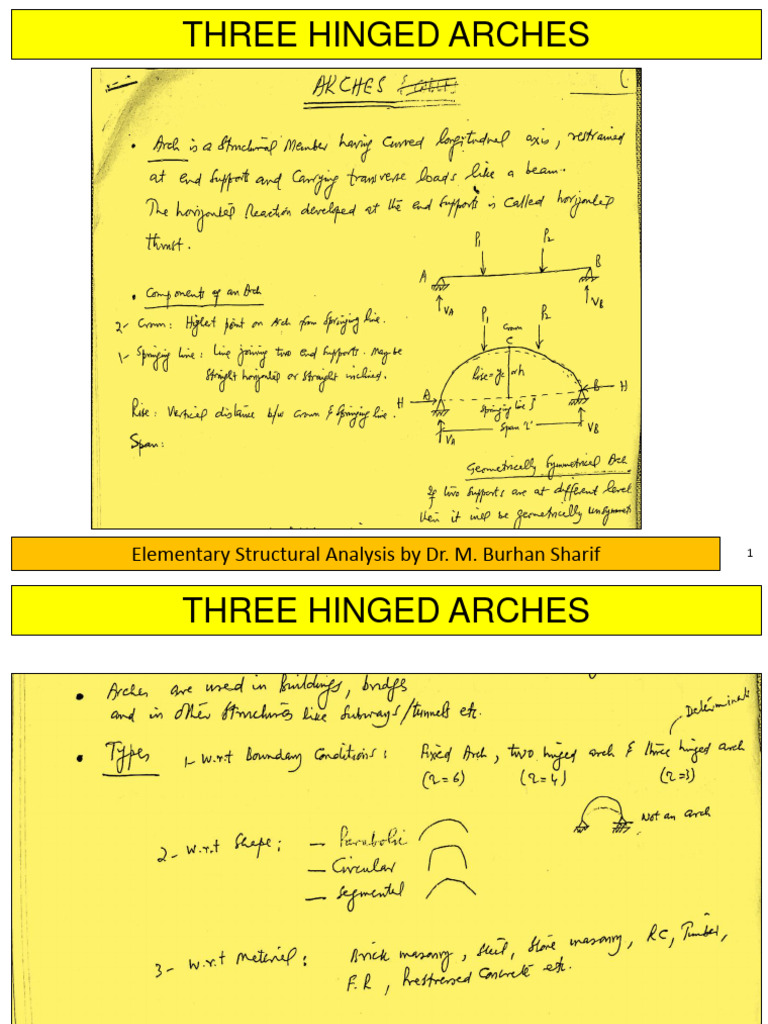 THREE HINGED ARCHES
ARCHES
• Arch is a Structural Member having curved longitudinal axis, restrained
at end supports and carrying transverse loads like a beam.
The horizontal reaction developed at the end supports is called horizontal
thrust.
P1 P2
A B
VA VB
• Components of an Arch
2- Crown: Highest point on Arch from springing line.
1- Springing line: Line joining two end supports. May be
straight horizontal or straight inclined.
Rise: Vertical distance b/w crown & springing line.
Span:
P1 P2
Crown
C
Rise = yc or h
H A B H
Springing line
Span 'L'
VA VB
Geometrically Symmetrical Arch
If two supports are at different level
then it will be geometrically unsymmet
Elementary Structural Analysis by Dr. M. Burhan Sharif
1
THREE HINGED ARCHES
• Arches are used in Buildings, bridges
and in other structures like subways/tunnels etc.
Determinate
• Types 1- w.r.t Boundary Conditions: Fixed Arch, two hinged arch & three hinged arch
(r=6) (r=4) (r=3)
Not an arch
2- w.r.t Shape: — Parabolic
— Circular
— Segmental
3- w.r.t Material: Brick masonry, Steel, Stone masonry, RC, Timber,
F.R, Prestressed Concrete etc.